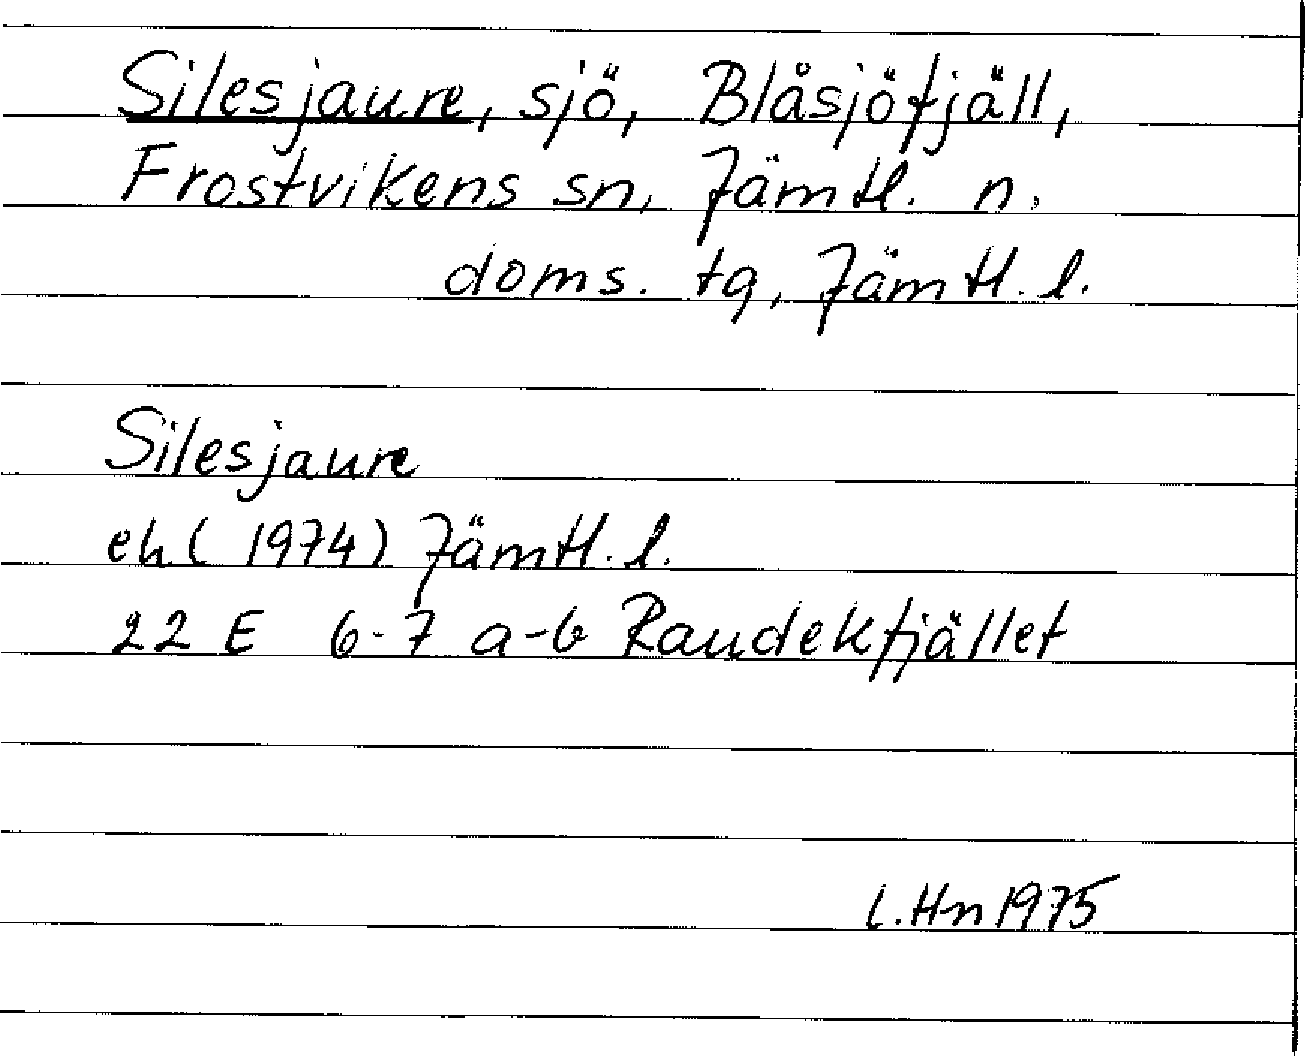 Silesjaure, sjö, Blåsjöfjäll,
Frostvikens sn, Jämtl. n.
doms. tg, Jämtl. l.
Silesjaure
ek (1974) Jämtl. l.
22 E 6-7 a-b Raudekfjället
L.Hn 1975